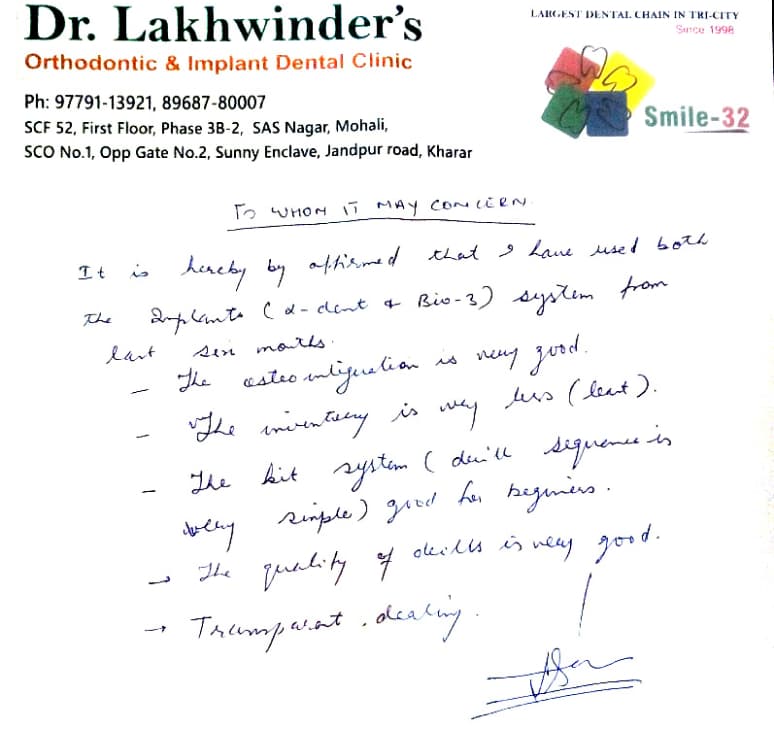 Dr. Lakhwinder's
Orthodontic & Implant Dental Clinic
Ph: 97791-13921, 89687-80007
SCF 52, First Floor, Phase 3B-2, SAS Nagar, Mohali,
SCO No.1, Opp Gate No.2, Sunny Enclave, Jandpur road, Kharar
LARGEST DENTAL CHAIN IN TRI-CITY
Since 1998
Smile-32
TO WHOM IT MAY CONCERN
It is hereby by affirmed that I have used both
the Implants (α-dent & Bio-3) system from
last six months.
- The osteointigration is very good.
- The inventory is very less (least).
- The kit system (drill sequence is
very simple) good for beginers.
→ The quality of drills is very good.
→ Transparent dealing.